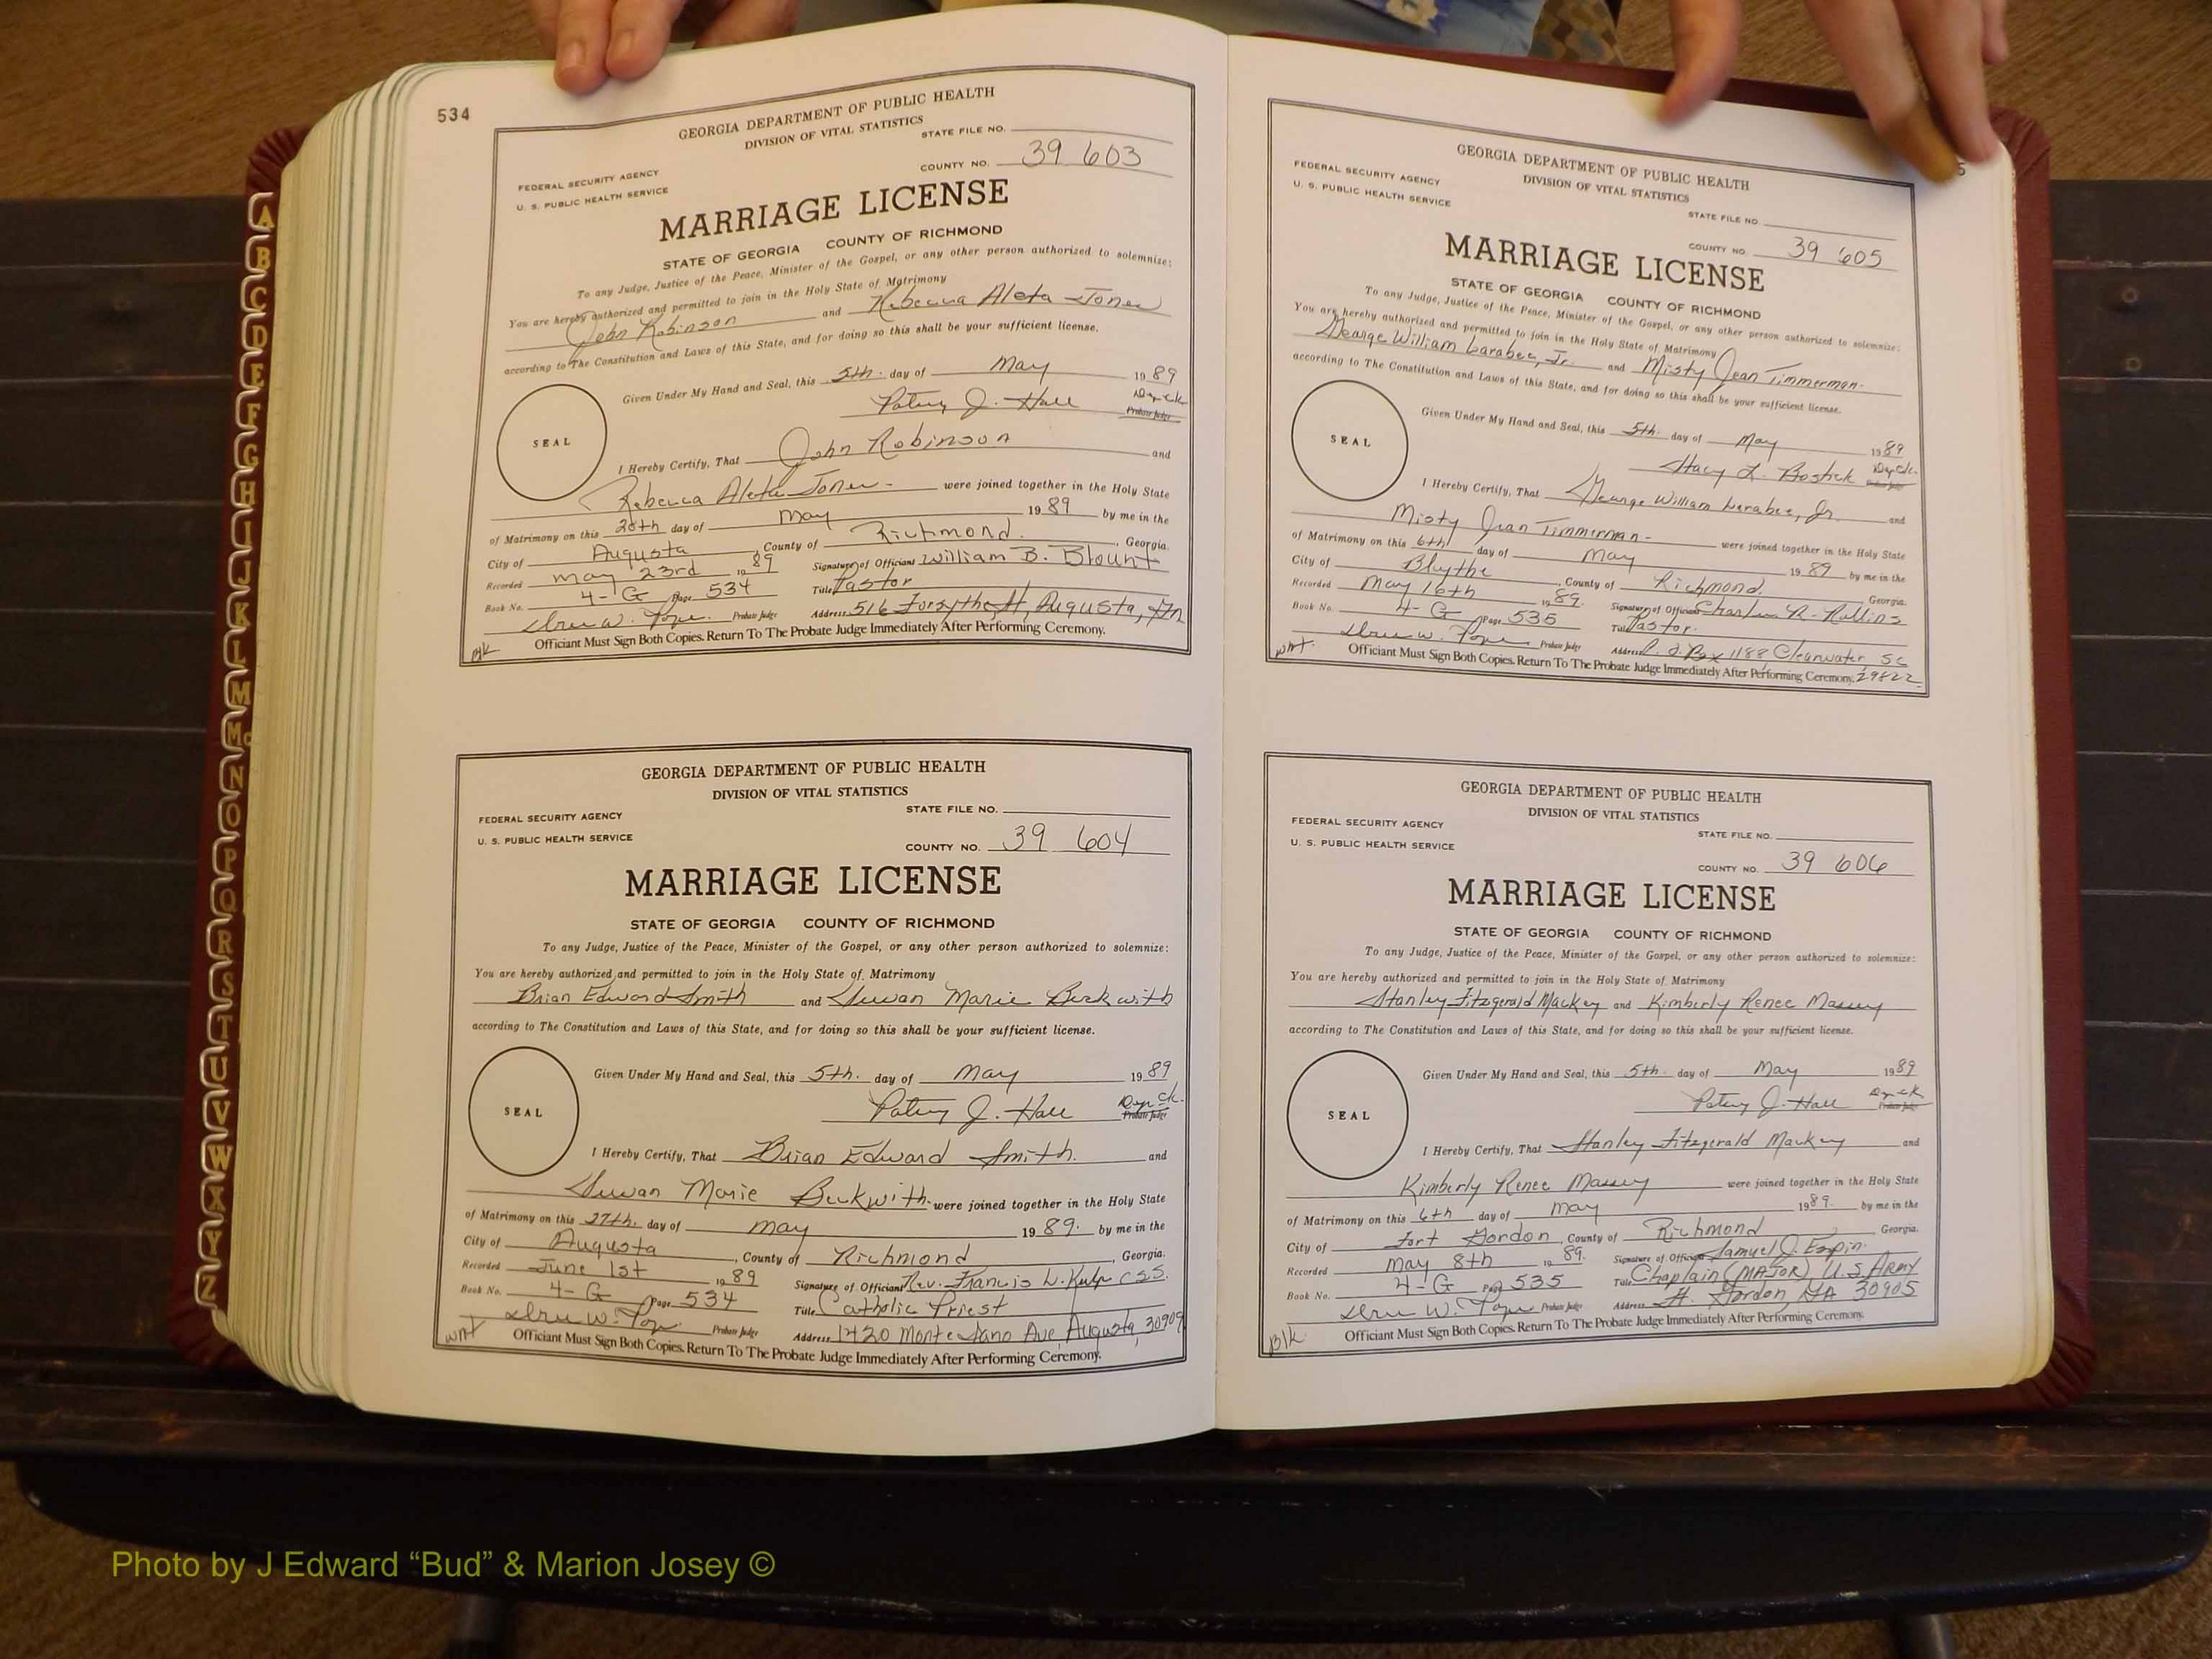 534
GEORGIA DEPARTMENT OF PUBLIC HEALTH
DIVISION OF VITAL STATISTICS
STATE FILE NO.
COUNTY NO. 39 603
FEDERAL SECURITY AGENCY
U. S. PUBLIC HEALTH SERVICE
MARRIAGE LICENSE
STATE OF GEORGIA COUNTY OF RICHMOND
To any Judge, Justice of the Peace, Minister of the Gospel, or any other person authorized to solemnize:
You are hereby authorized and permitted to join in the Holy State of Matrimony
John Robinson and Rebecca Aleta Jones
according to The Constitution and Laws of this State, and for doing so this shall be your sufficient license.
Given Under My Hand and Seal, this 5th. day of May 1989
Patsy J. Hall Dep Ck
Probate Judge
SEAL
I Hereby Certify, That John Robinson and
Rebecca Aleta Jones were joined together in the Holy State
of Matrimony on this 20th day of May 1989 by me in the
City of Augusta, County of Richmond, Georgia.
Recorded May 23rd 1989 Signature of Official William B. Blount
Book No. 4-G Page 534 Title Pastor
Probate Judge Address 516 Forsythe St, Augusta, Ga
Officiant Must Sign Both Copies. Return To The Probate Judge Immediately After Performing Ceremony.
Blk
GEORGIA DEPARTMENT OF PUBLIC HEALTH
DIVISION OF VITAL STATISTICS
STATE FILE NO.
FEDERAL SECURITY AGENCY
U. S. PUBLIC HEALTH SERVICE
COUNTY NO. 39 604
MARRIAGE LICENSE
STATE OF GEORGIA COUNTY OF RICHMOND
To any Judge, Justice of the Peace, Minister of the Gospel, or any other person authorized to solemnize:
You are hereby authorized and permitted to join in the Holy State of Matrimony
Brian Edward Smith and Susan Marie Beckwith
according to The Constitution and Laws of this State, and for doing so this shall be your sufficient license.
Given Under My Hand and Seal, this 5th. day of May 1989
Patsy J. Hall Dep Ck.
Probate Judge
SEAL
I Hereby Certify, That Brian Edward Smith. and
Susan Marie Beckwith. were joined together in the Holy State
of Matrimony on this 27th. day of May 1989. by me in the
City of Augusta, County of Richmond, Georgia.
Recorded June 1st 1989 Signature of Official Rev. Francis W. CSS.
Book No. 4-G Page 534 Title Catholic Priest
Probate Judge Address 1420 Monte Sano Ave Augusta, 30909
Officiant Must Sign Both Copies. Return To The Probate Judge Immediately After Performing Ceremony.
wht
5
GEORGIA DEPARTMENT OF PUBLIC HEALTH
DIVISION OF VITAL STATISTICS
FEDERAL SECURITY AGENCY
U. S. PUBLIC HEALTH SERVICE
STATE FILE NO
COUNTY NO. 39 605
MARRIAGE LICENSE
STATE OF GEORGIA COUNTY OF RICHMOND
To any Judge, Justice of the Peace, Minister of the Gospel, or any other person authorized to solemnize:
You are hereby authorized and permitted to join in the Holy State of Matrimony
George William Larabee, Jr. and Misty Jean Timmerman-
according to The Constitution and Laws of this State, and for doing so this shall be your sufficient license.
Given Under My Hand and Seal, this 5th. day of May 1989
Stacy L. Bostick Dep Ck.
SEAL
I Hereby Certify, That George William Larabee, Jr. and
Misty Jean Timmerman- were joined together in the Holy State
of Matrimony on this 6th day of May 1989 by me in the
City of Blythe, County of Richmond. Georgia.
Recorded May 16th 1989. Signature of Official Charles R. Rollins
Book No. 4-G Page 535 Title Pastor.
Probate Judge Address P. O. Box 1188 Clearwater, SC
Officiant Must Sign Both Copies. Return To The Probate Judge Immediately After Performing Ceremony. 29822
wht.
GEORGIA DEPARTMENT OF PUBLIC HEALTH
DIVISION OF VITAL STATISTICS
FEDERAL SECURITY AGENCY
STATE FILE NO.
U. S. PUBLIC HEALTH SERVICE
COUNTY NO. 39 606
MARRIAGE LICENSE
STATE OF GEORGIA COUNTY OF RICHMOND
To any Judge, Justice of the Peace, Minister of the Gospel, or any other person authorized to solemnize:
You are hereby authorized and permitted to join in the Holy State of Matrimony
Stanley Fitzgerald Mackey and Kimberly Renee Massey
according to The Constitution and Laws of this State, and for doing so this shall be your sufficient license.
Given Under My Hand and Seal, this 5th. day of May 1989
Patsy J. Hall Dep Ck
SEAL
I Hereby Certify, That Stanley Fitzgerald Mackey and
Kimberly Renee Massey were joined together in the Holy State
of Matrimony on this 6th day of May 1989. by me in the
City of Fort Gordon, County of Richmond Georgia.
Recorded May 8th 1989. Signature of Official Samuel J.
Book No. 4-G Page 535 Title Chaplain (MAJOR) U.S. ARMY
Probate Judge Address Ft. Gordon, GA 30905
Officiant Must Sign Both Copies. Return To The Probate Judge Immediately After Performing Ceremony.
Blk
A
B
C
D
E
F
G
H
I
J
K
L
M
Mc
N
O
P
Q
R
S
T
U
V
W
X
Y
Z
Photo by J Edward “Bud” & Marion Josey ©